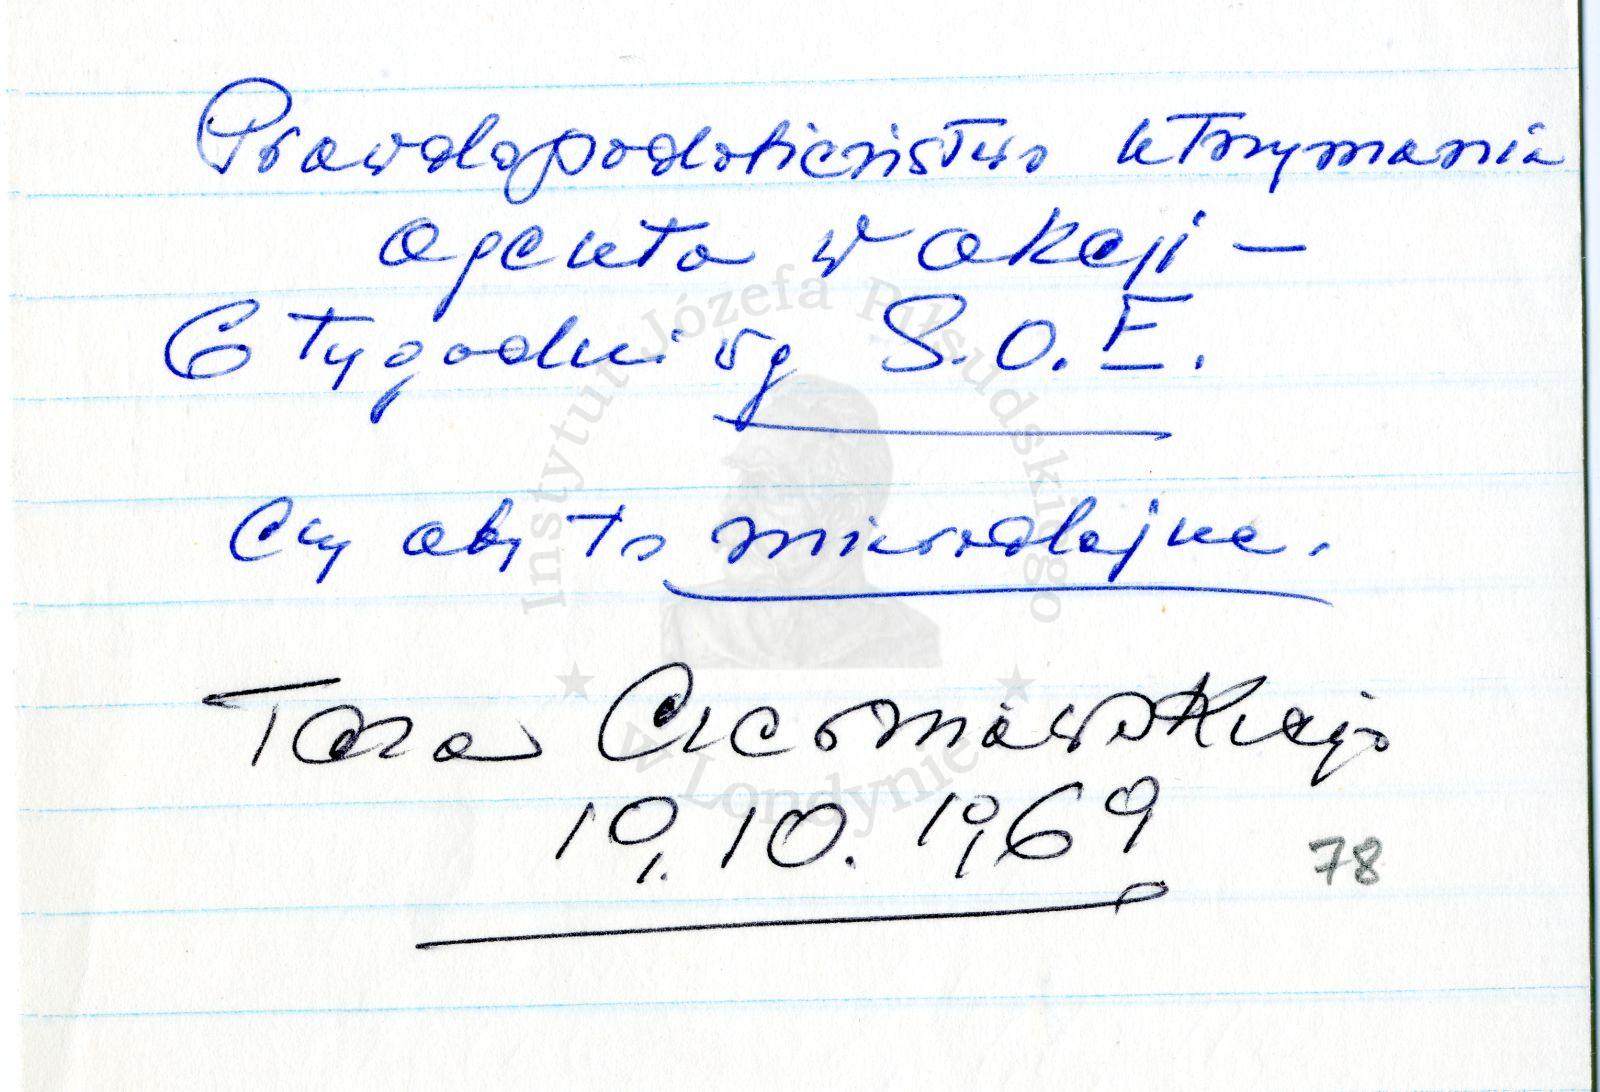 Prawdopodobieństwo utrzymania
agenta w akcji –
6 tygodni wg S.O.E.
Czy aby to miarodajne.
Teza Czerniawskiego
10.10.1969
78
Instytut Józefa Piłsudskiego
w Londynie